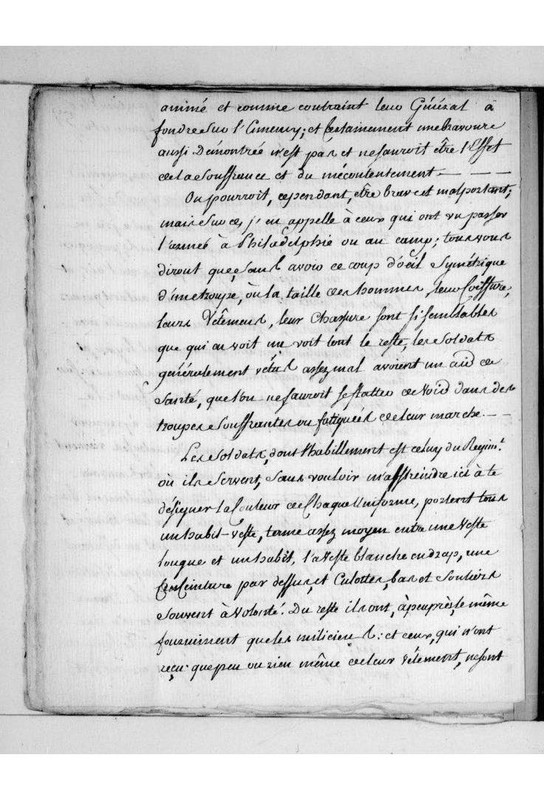 animé et comme contraint leur Général à
fondre sur l'Ennemy; et Certainement une bravoure
aussi Démontrée n'est pas et ne sauroit être l'Effet
de la Souffrance et du mécontentement. — — —
On pourroit, cependant, être brave et mal portant;
mais sur ce, j'en appelle à ceux qui ont vu passer
l'armée à Philadelphie ou au camp; tous vous
diront que, sans avoir ce coup d'oeil Symétrique
d'une troupe, où la taille des hommes, leur Coiffure,
leurs Vêtemens, leur Chaussure sont si semblables
que qui en voit un voit tout le reste, les Soldats
généralement vêtus assez mal avoient un air de
Santé, que l'on ne sauroit se flatter de voir dans des
troupes Souffrantes ou fatiguées de leur marche. — —
Les Soldats, dont l'habillement est celuy du Regim.t
où ils servent, sans vouloir m'astreindre ici à te
désigner la Couleur de Chaque Uniforme, portent tous
un habit-veste, terme assez moyen entre une Veste
longue et un habit, la Veste blanche en drap, une
Ceinture par dessus, et Culottes, bas et Souliers
Souvent à Volonté. Du reste ils ont, à peu près, le même
fourniment que les miliciens: et ceux, qui n'ont
reçu que peu ou rien même de leur Vêtement, ne sont